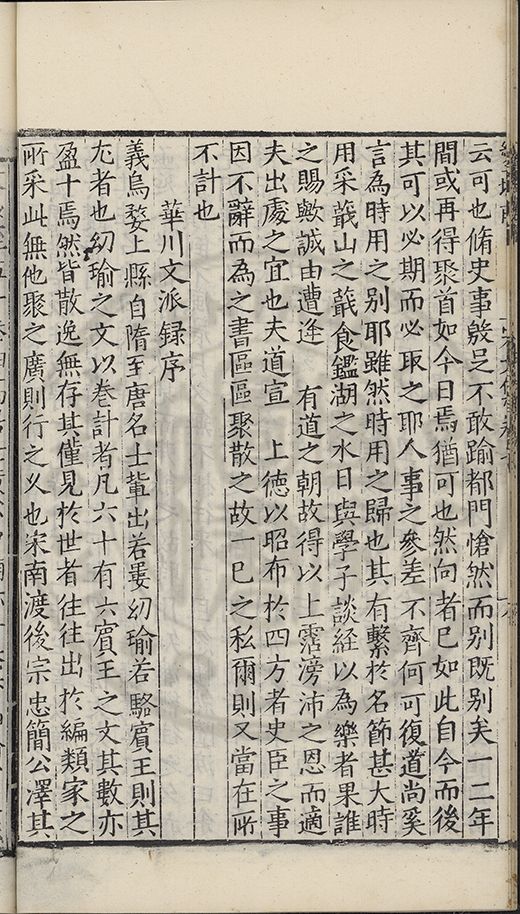 云可也脩史事殷足不敢踰都門愴然而别既别矣一二年
間或再得聚首如今日焉猶可也然向者已如此自今而後
其可以必期而必取之耶人事之參差不齊何可復道尚奚
言為時用之别耶雖然時用之歸也其有繫於名節甚大時
用采蕺山之蕺食鑑湖之水日與學子談経以為樂者果誰
之賜歟誠由遭逢 有道之朝故得以上霑滂沛之恩而適
夫出處之宜也夫道宣 上徳以昭布於四方者史臣之事
因不辭而為之書區區聚散之故一已之私爾則又當在所
不計也
華川文派録序
義烏婺上縣自隋至唐名士輩出若婁幼瑜若駱賓王則其
尤者也幼瑜之文以巻計者凡六十有六賓王之文其數亦
盈十焉然皆散逸無存其僅見於世者往往出於編類家之
所采此無他聚之廣則行之乆也宋南渡後宗忠簡公澤其